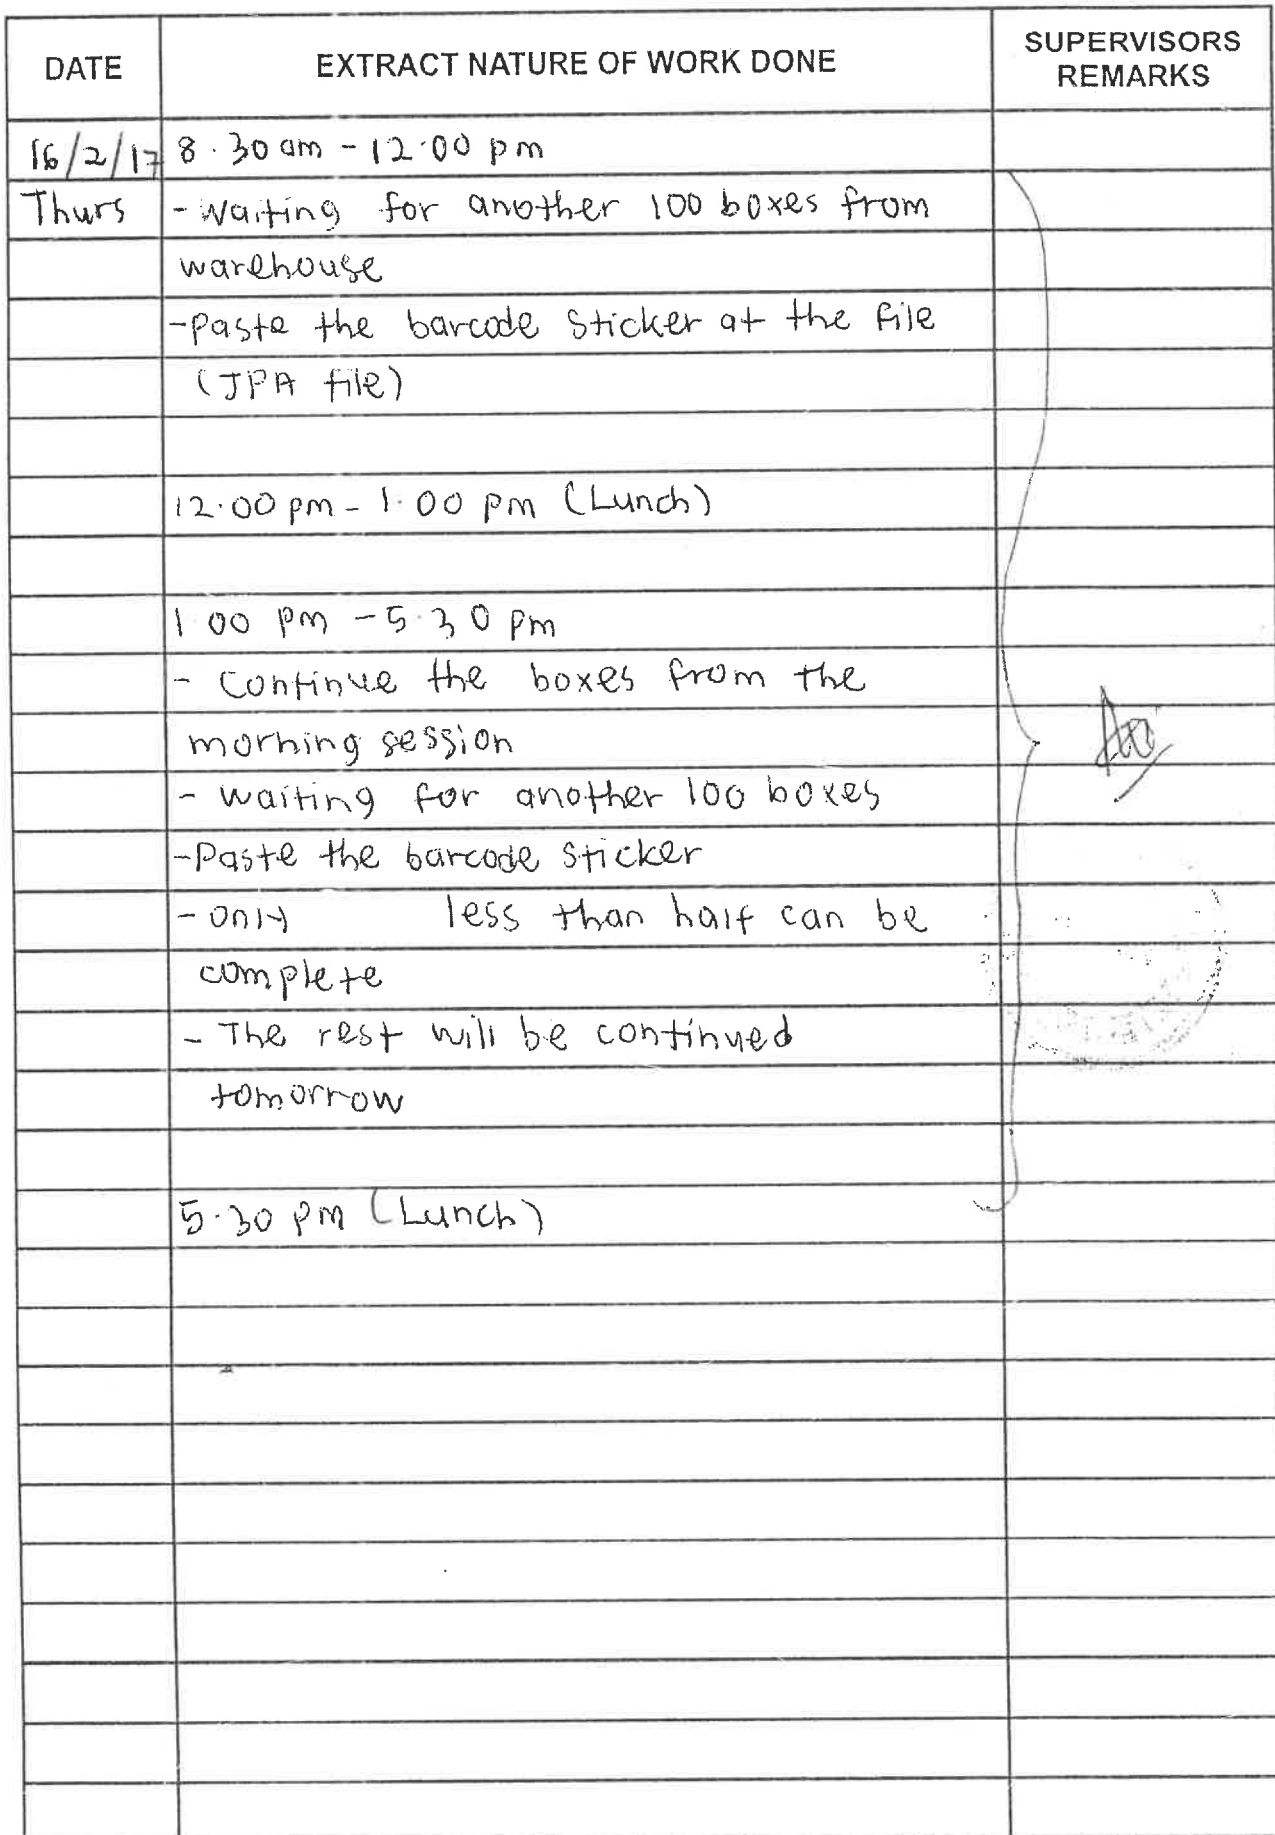 DATE
EXTRACT NATURE OF WORK DONE
SUPERVISORS
REMARKS
16/2/17 8.30 am - 12.00 pm
Thurs - waiting for another 100 boxes from
warehouse
- paste the barcode sticker at the file
(JPA file)
12.00 pm - 1.00 pm (Lunch)
1.00 pm - 5.30 pm
- Continue the boxes from the
morning session
- waiting for another 100 boxes
- Paste the barcode sticker
- only less than half can be
complete
- The rest will be continued
tomorrow
5.30 pm (Lunch)